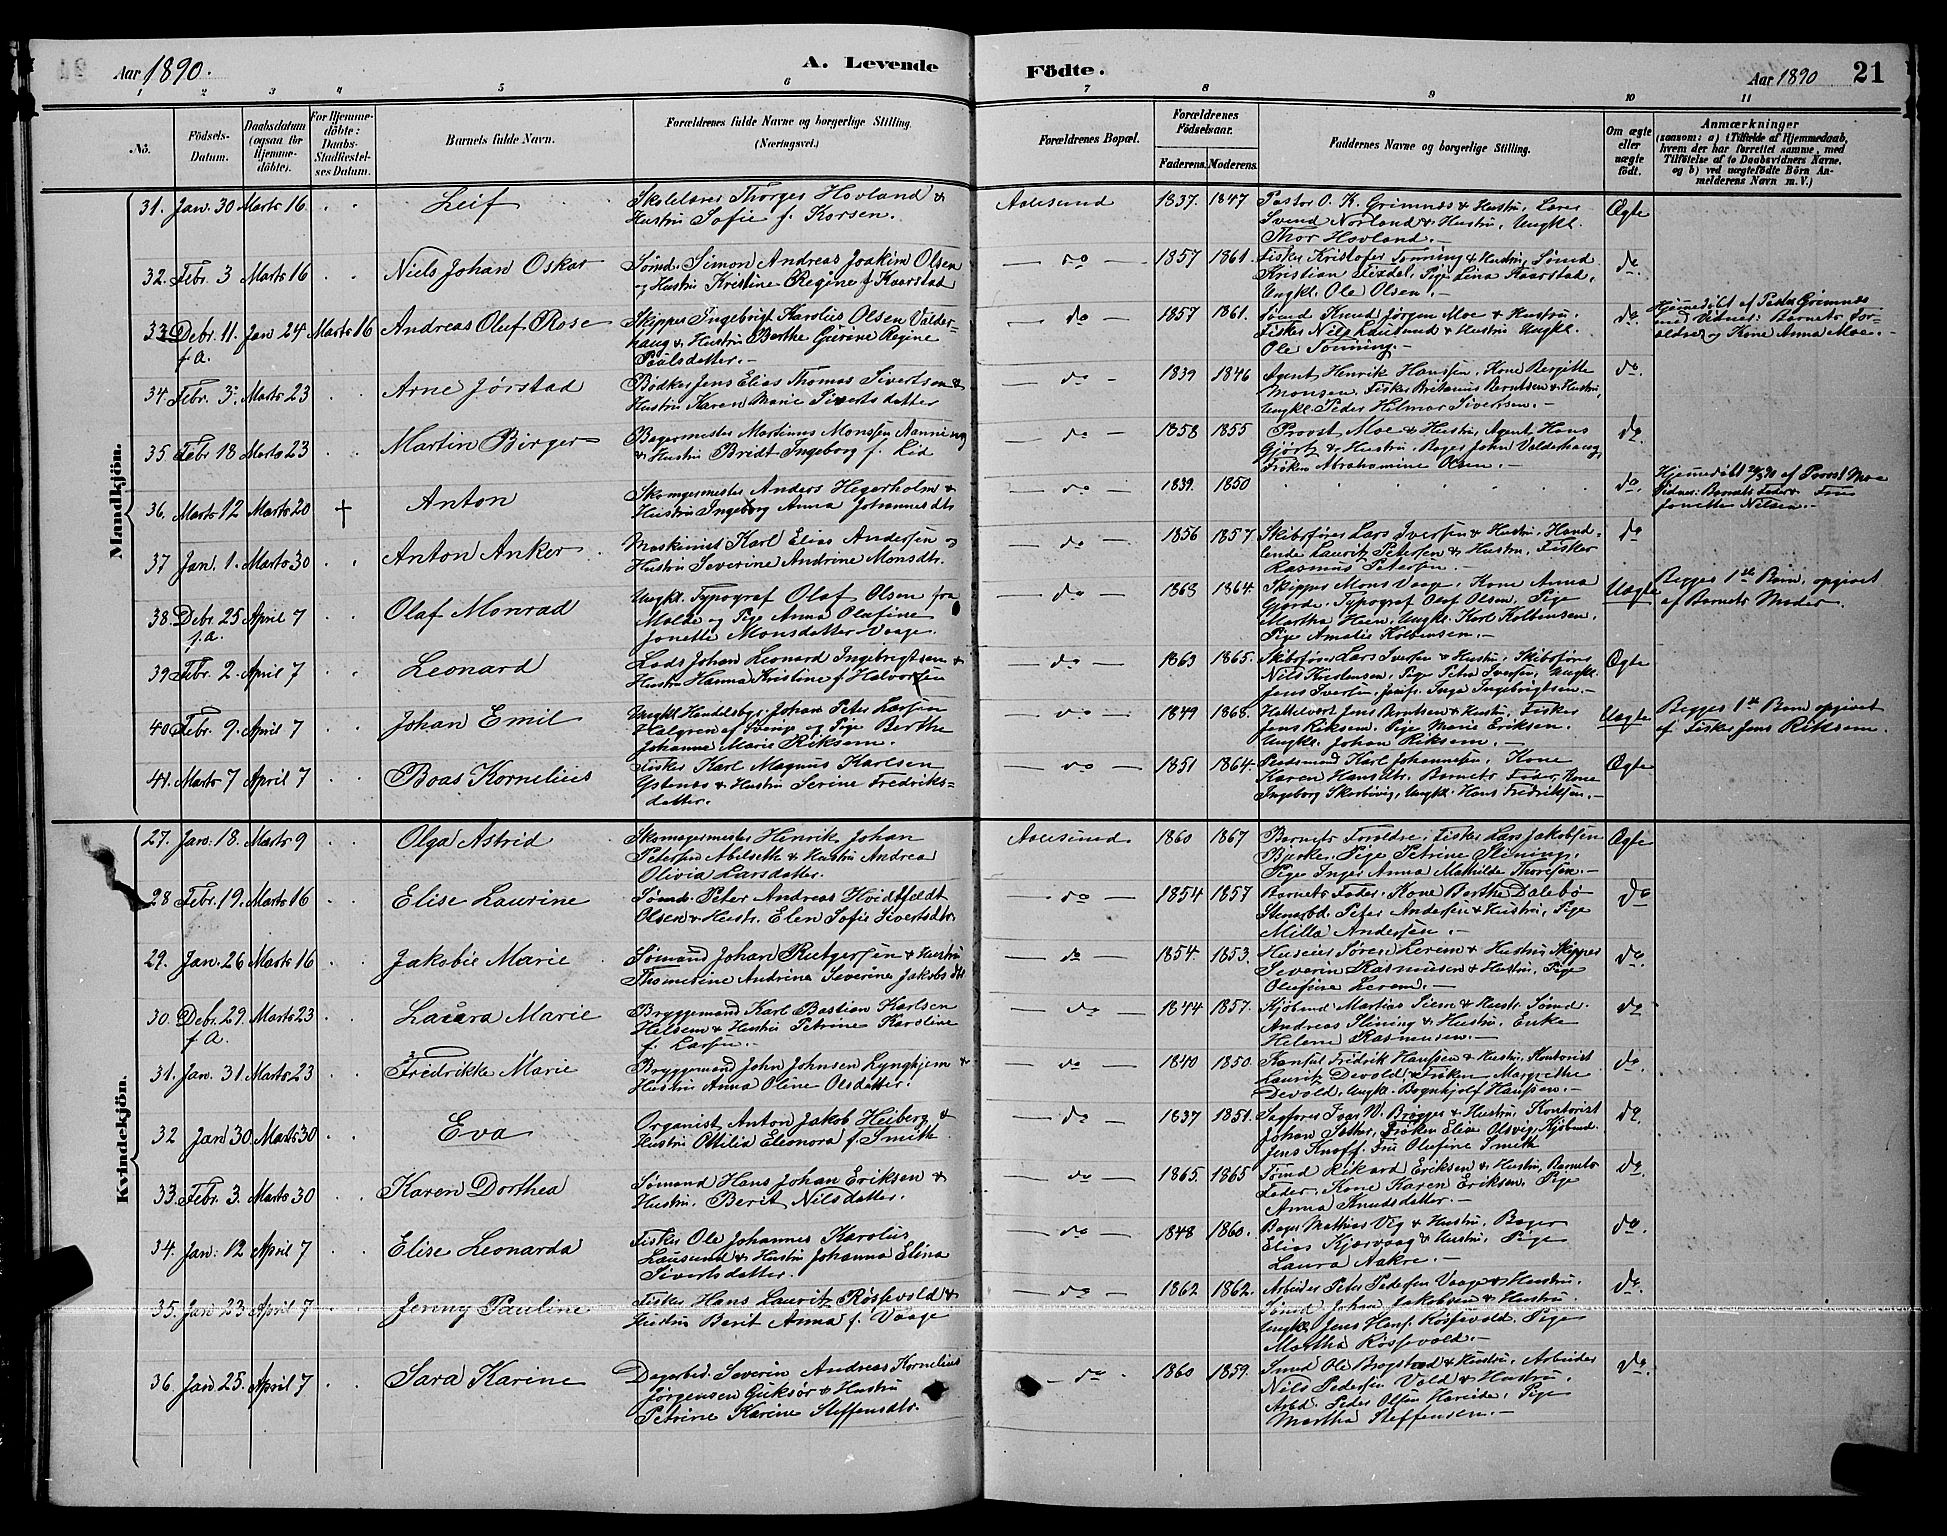 Aar 1890.
A. Levende
Födte.
Aar 1890
21
1 2 3 4 5 6 7 8 9 10 11
No.
Födsels-
Datum.
Daabsdatum
(ogsaa for
Hjemme-
döbte).
For Hjemme-
döbte:
Daabs-
Stadfæstel-
ses Datum.
Barnets fulde Navn.
Forældrenes fulde Navne og borgerlige Stilling.
(Næringsvei.)
Forældrenes Bopæl.
Forældrenes
Födselsaar.
Faderens. Moderens.
Faddernes Navne og borgerlige Stilling.
Om ægte
eller
uægte
født.
Anmærkninger
(saasom: a) i Tilfælde af Hjemmedaab,
hvem der har forrettet samme, med
Tilføielse af to Daabsvidners Navne.
og b) ved uægtefödte Börn An-
melderens Navn m. V.)
Mandkjön.
31. Jan. 30 Marts 16 Leif
Skolelærer Thorges Hovland &
Hustru Sofie f. Korsen.
Aalesund 1837. 1847
Pastor O. K. Grimnes & Hustru, Lærer
Svend Norland & Hustru, Ungkl.
Thor Hovland.—
Ægte
32. Febr. 3 Marts 16 Niels Johan Oskar
Sömd. Simon Andreas Joakim Olsen
og Hustru Kristine Regine f. Kaarstad
do 1857 1861.
Fisker Kristofer Tonning & Hustru, Sömd
Kristian Eixdel, Pige Lina Kaarstad,
Ungkl. Ole Olsen.—
do
33 Debr. 11. Jan 24 Marts 16 Andreas Oluf Rose
f.a.
Skipper Ingebrigt Karolius Olsen Valder-
haug & Hustru Berthe Gurine Regine
Paulsdatter.—
do 1857 1861.
Sömd Knud Jörgen Moe & Hustru,
Fisker Nils Lausund & Hustru Ungkl.
Ole Tonning.—
do
Hjemmedöbt af Pastor Grimnes
med Vidner: Barnets For-
ældre og Kone Anna Moe.—
34. Febr. 3. Marts 23 Arne Jørstad
Bödker Jens Elias Thomas Sivertsen &
Hustru Karen Marie Sivertsdatter
do 1839 1846
Agent Henrik Hanssen, Kone Bergitte
Monsen, Fisker Britanius Berntsen & Hustru,
Ungkl. Peder Hilmar Sivertsen.—
do
35. Febr 18 Marts 23 Martin Birger
Bagermester Martinus Monssen Nanning
& Hustru Bredt Ingeborg f. Lid
do 1858 1855
Provst Moe & Hustru, Agent Hans
Gjörtz & Hustru, Bager John Valderhaug,
Frøken Abrahamine Olsen.—
do
36. Marts 12 Marts 20 † Anton
Skomagermester Anders Hegerholm &
Hustru Ingeborg Anna Johannesdtr
do 1839. 1850
do
Hjemmedöbt 20/3 90 af Provst Moe
Vidner: Barnets Fader & Fru
Jonette Nilsen.—
37 Jan. 1. Marts 30 Anton Anker
Maskinist Karl Elias Andersen og
Hustru Severine Andrine Monsdtr.
do 1856 1857.
Skibsförer Lars Iversen & Hustru, Hand-
lende Lauritz Petersen & Hustru, Fisker
Rasmus Petersen.—
do
38. Debr. 25 April 7 Olaf Monrad
f.a.
Ungkl. Typograf Olaf Olsen fra
Molde og Pige Anna Olafine
Jonette Monsdatter Vaage.
do 1863 1864.
Skipper Mons Vaage, Kone Anna
Gjörde, Typograf Olaf Olsen, Pige
Martha Hein, Ungkl. Karl Kolbensen,
Pige Amalie Kolbensen.—
Uægte
Begges 1ste Barn, opgivet
af Barnets Moder.
39 Febr. 2. April 7 Leonard
Lods Johan Leonard Ingebrigtsen &
Hustru Hanna Kristine f. Halvorsen
do 1863 1865.
Skibsförer Lars Iversen & Hustru, Skibsförer
Nils Knudsen, Pige Petra Iversen, Ungkl.
Jens Iversen, Jomfr. Inga Ingebrigtsen.—
Ægte
40 Febr. 9. April 7 Johan Emil
Ungkl Handelsbgs. Johan Peter Larsen
Halgren af Sverige og Pige Berthe
Johanne Marie Riksem.
do 1849 1868.
Hattelvort Jens Berntsen & Hustru, Fisker
Jens Riksem, Pige Marie Eriksen,
Ungkl. Johan Riksem.—
Uægte
Begges 1ste Barn opgivet
af Fisker Jens Riksem.
41. Marts 7 April 7 Boas Kornelius
Fisker Karl Magnus Karlsen
Ystenes & Hustru Serine Fredriks-
datter.
do 1851 1864.
Karl Johannesen, Kone
Karen Hansdtr. Barnets Fader, Kone
Ingeborg Skorbövig, Ungkl. Hans Fredriksen.—
Ægte
Kvindekjön.
27. Jan. 18. Marts 9 Olga Astrid
Skomagermester Henrik Johan
Petersen Abelseth & Hustru Andrea
Olivia Larsdatter.
Aalesund 1860 1867
Barnets Forældre, Fisker Lars Jakobsen
Bjerke, Pige Petrine Slining,
Pige Inger Anna Mathilde Thoresen.—
Ægte
28 Febr. 19. Marts 16 Elise Laurine
Sömd. Peter Andreas Hvidtfeldt
Olsen & Hustr. Elen Sofie Sivertsdtr.
do 1854 1857
Barnets Fader. Kone Berthe Dalebö
Stenarbd. Peter Andersen & Hustru, Pige
Milla Andersen.—
do
29. Jan. 26 Marts 16 Jakobie Marie
Sömand Johan Rutgersen & Hustru
Thomesine Andrine Severine Jakobsdtr
do 1854. 1853.
Huseier Sören Lerem & Hustru, Skipper
Severin Rasmusen & Hustru, Pige
Olufine Lerem.—
do
30. Debr. 29. Marts 23 Laura Marie
f.a.
Bryggemand Karl Bastian Karlsen
Helsem & Hustru Petrine Karoline
f. Larsen.—
do 1844 1857.
Kjöbmd Martias Siem & Hustr. Sömd.
Andreas Slining & Hustru, Enke
Helene Rasmussen.—
do
31. Jan. 31 Marts 23 Fredrikke Marie
Bryggemand John Johnsen Lynghjem &
Hustru Anna Oline Olsdatter.
do 1840 1850
Konsul Fredrik Hanssen & Hustru, Kontorist
Lauritz Devold & Fröken Margrethe
Devold, Ungkl. Bognhjolf Hanssen.—
do
32 Jan 30. Marts 30 Eva
Organist Anton Jakob Heiberg &
Hustru Ottilia Eleonora f. Smith
do 1837 1851.
Sagförer Ivar W. Brögger & Hustru, Kontorist
Johan Sæther, Fröken Elise Olsvig, Kjöbmd.
Jens Knoff. Fru Olufine Smith
do
33. Febr. 3. Marts 30 Karen Dorthea
Sömand Hans Johan Eriksen &
Hustru. Berit Nilsdatter.
do 1865. 1865
Sömd Rikard Eriksen & Hustru, Barnets
Fader, Kone Karen Eriksen, Pige
Anna Knudsdatter.—
do
34. Jan. 12 April 7 Elise Leonarda
Fisker Ole Johannes Karolus
Lausund & Hustru Johanna Elina
Sivertsdatter.
do 1848 1860.
Bager Mathias Vig & Hustru, Bager
Elias Kjærvaag & Hustru, Pige
Laura Nakre.—
do
35. Jan 23 April 7 Jenny Pauline
Fisker Hans Lauritz Røssevold &
Hustru Berit Anna f. Vaage
do 1862 1862.
Arbeider Peter Pedersen Vaage & Hustru,
Sömd Johan Jakobsen & Hustru,
Ungkl. Jens Hans. Røssevold. Pige
Martha Røssevold.—
do
36. Jan 25. April 7 Sara Karine
Dagarbd. Severin Andreas Kornelius
Jörgensen Guksör & Hustru
Petrine Karine Steffensdtr.
do 1860 1859.
Smed Ole Brogstad & Hustru, Arbeider
Nils Pedersen Vold & Hustru,
Arbd. Peder Olsen Hareide, Pige
Martha Steffensen.—
do